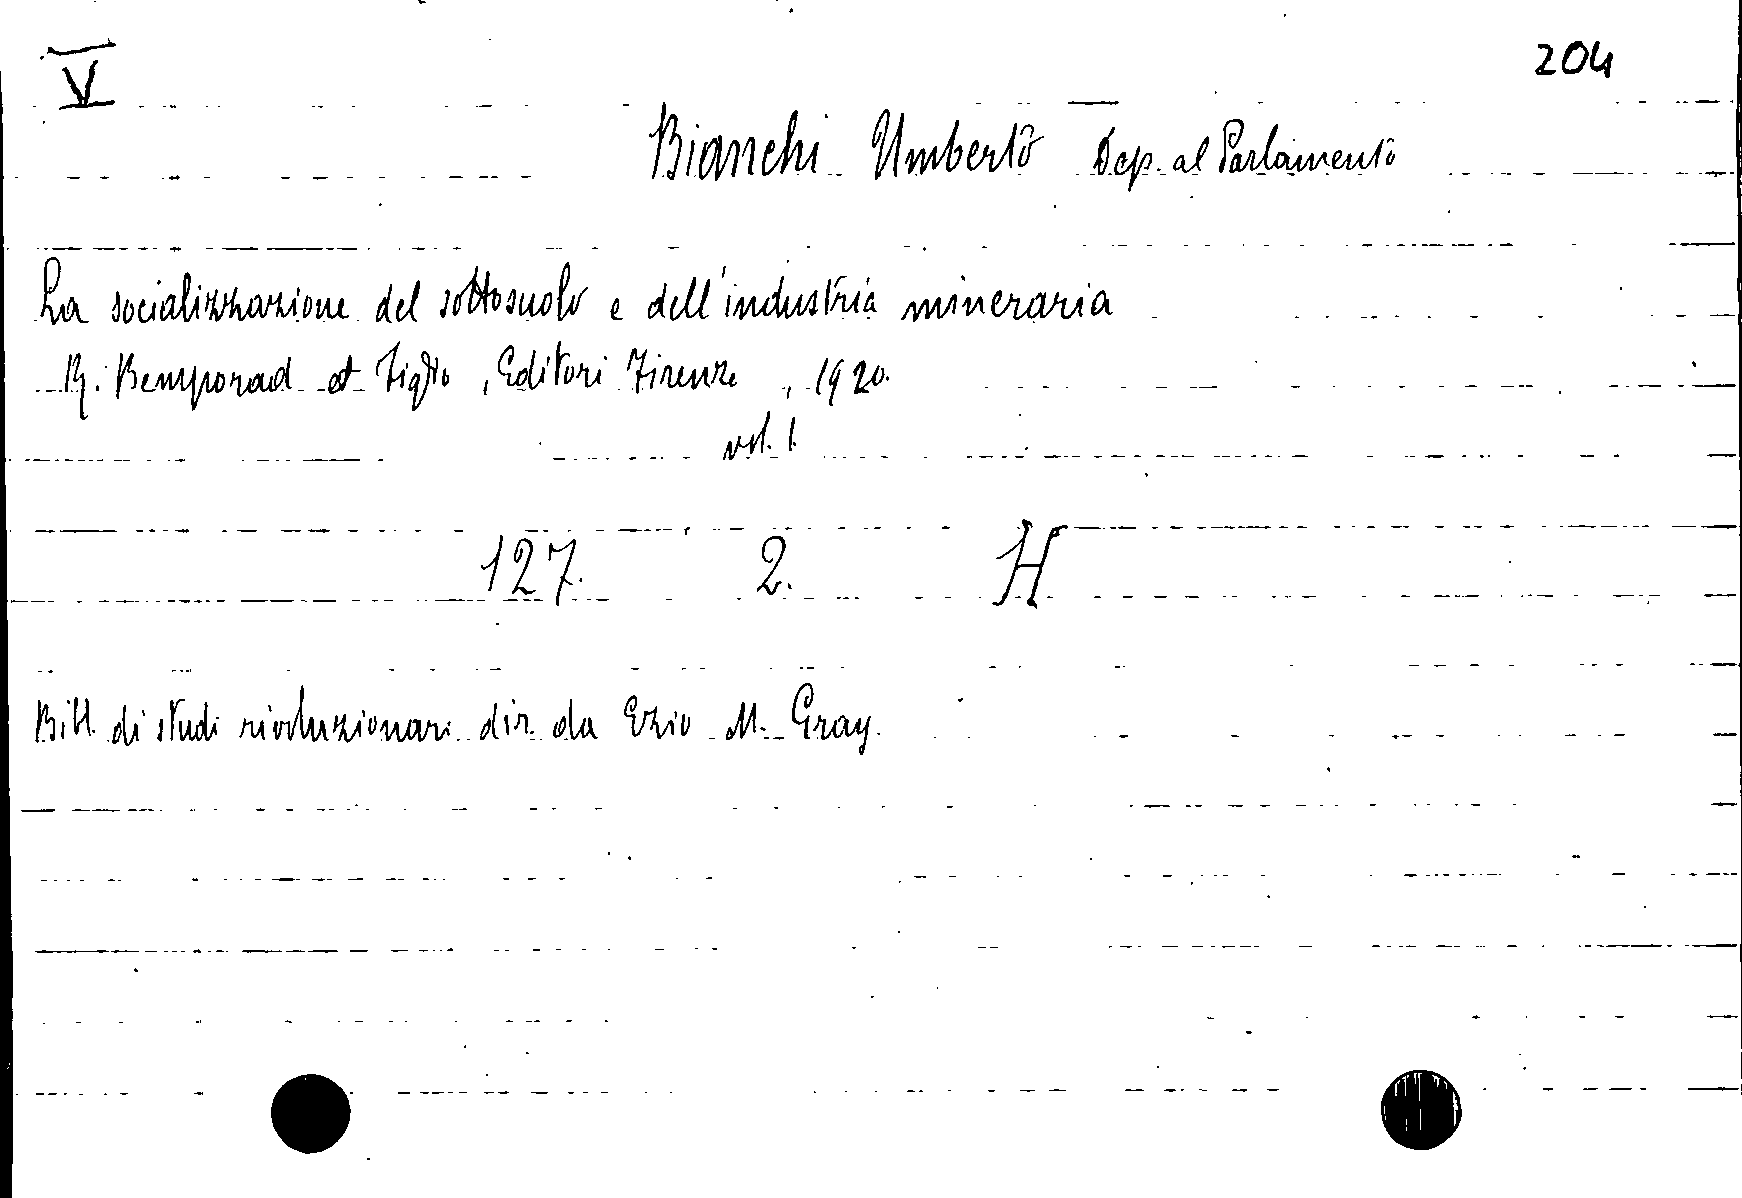 V 204
Bianchi Umberto Dep. al Parlamento
La socializzazione del sottosuolo e dell'industria mineraria
R. Bemporad et Figlio, Editori Firenze, 1920.
vol. 1.
127. 2. H
Bibl. di studi rivoluzionari dir. da Ezio M. Gray.